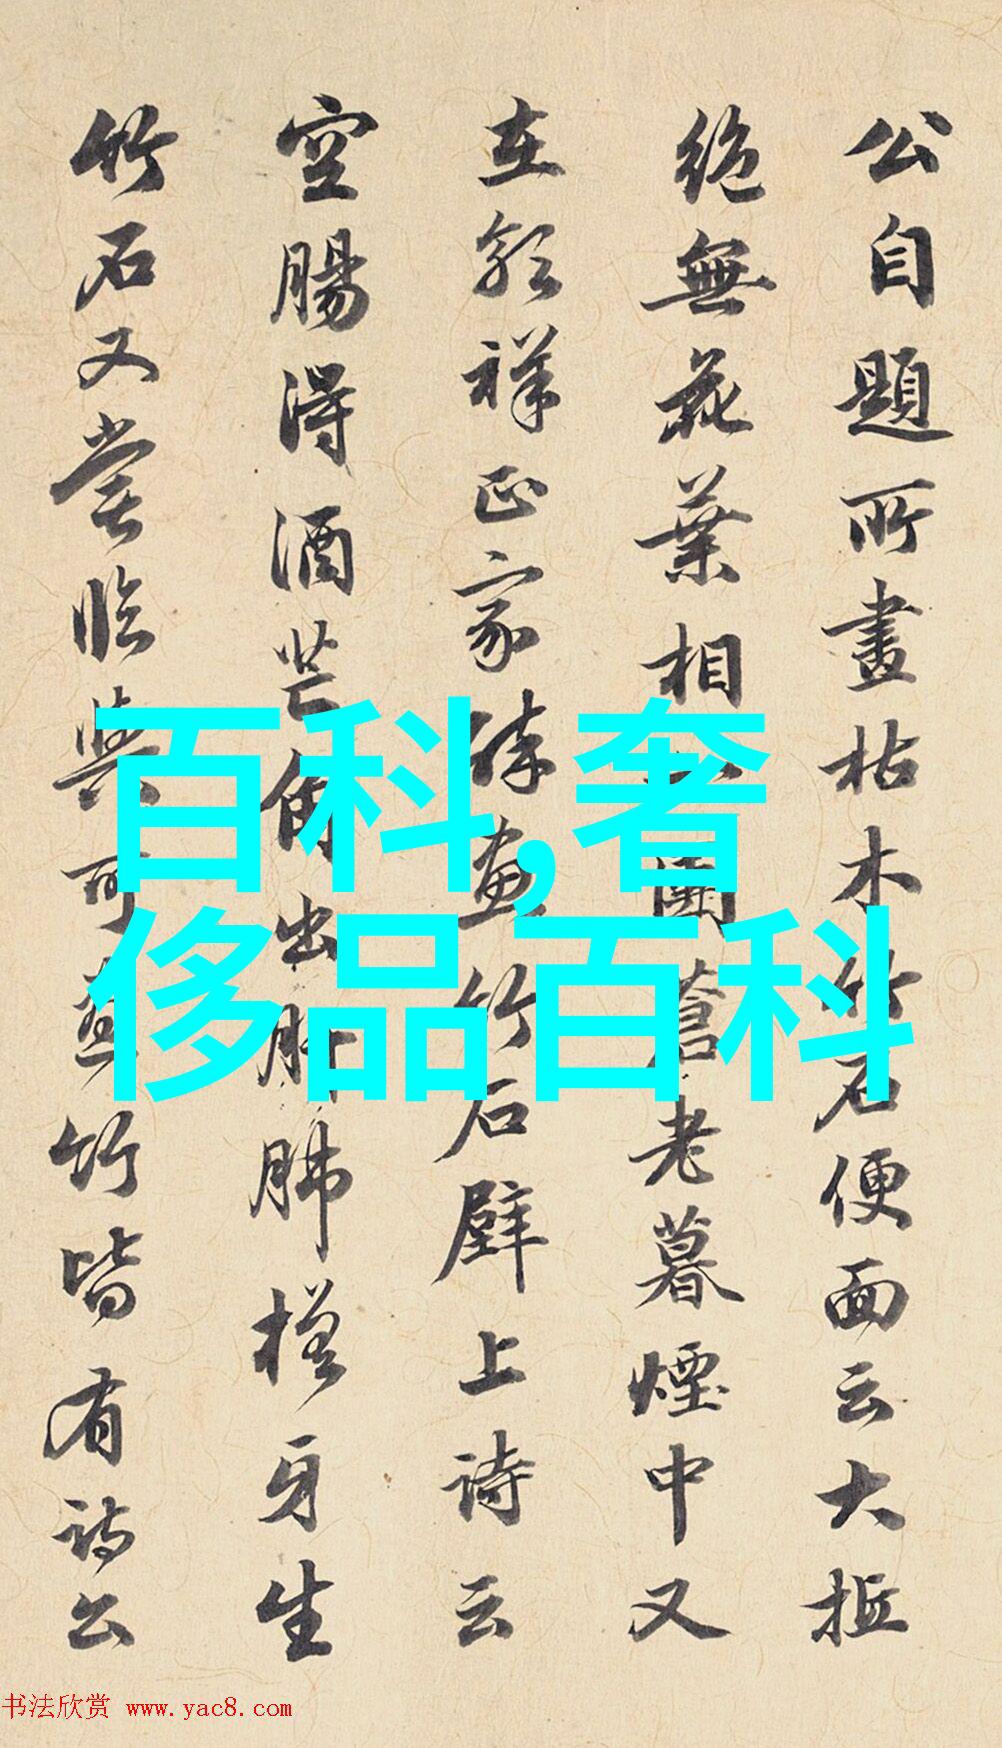 公自題所畫枯木竹石便面云大抵
絶無花葉相圍蒼老暮煙中又
在郭祥正家醉畫竹石壁上詩云
空腸得酒芒角出肝肺槎牙生
竹石又嘗臨與可畫竹皆有詩公
百科,奢
侈品百科
书法欣赏 www.yac8.com